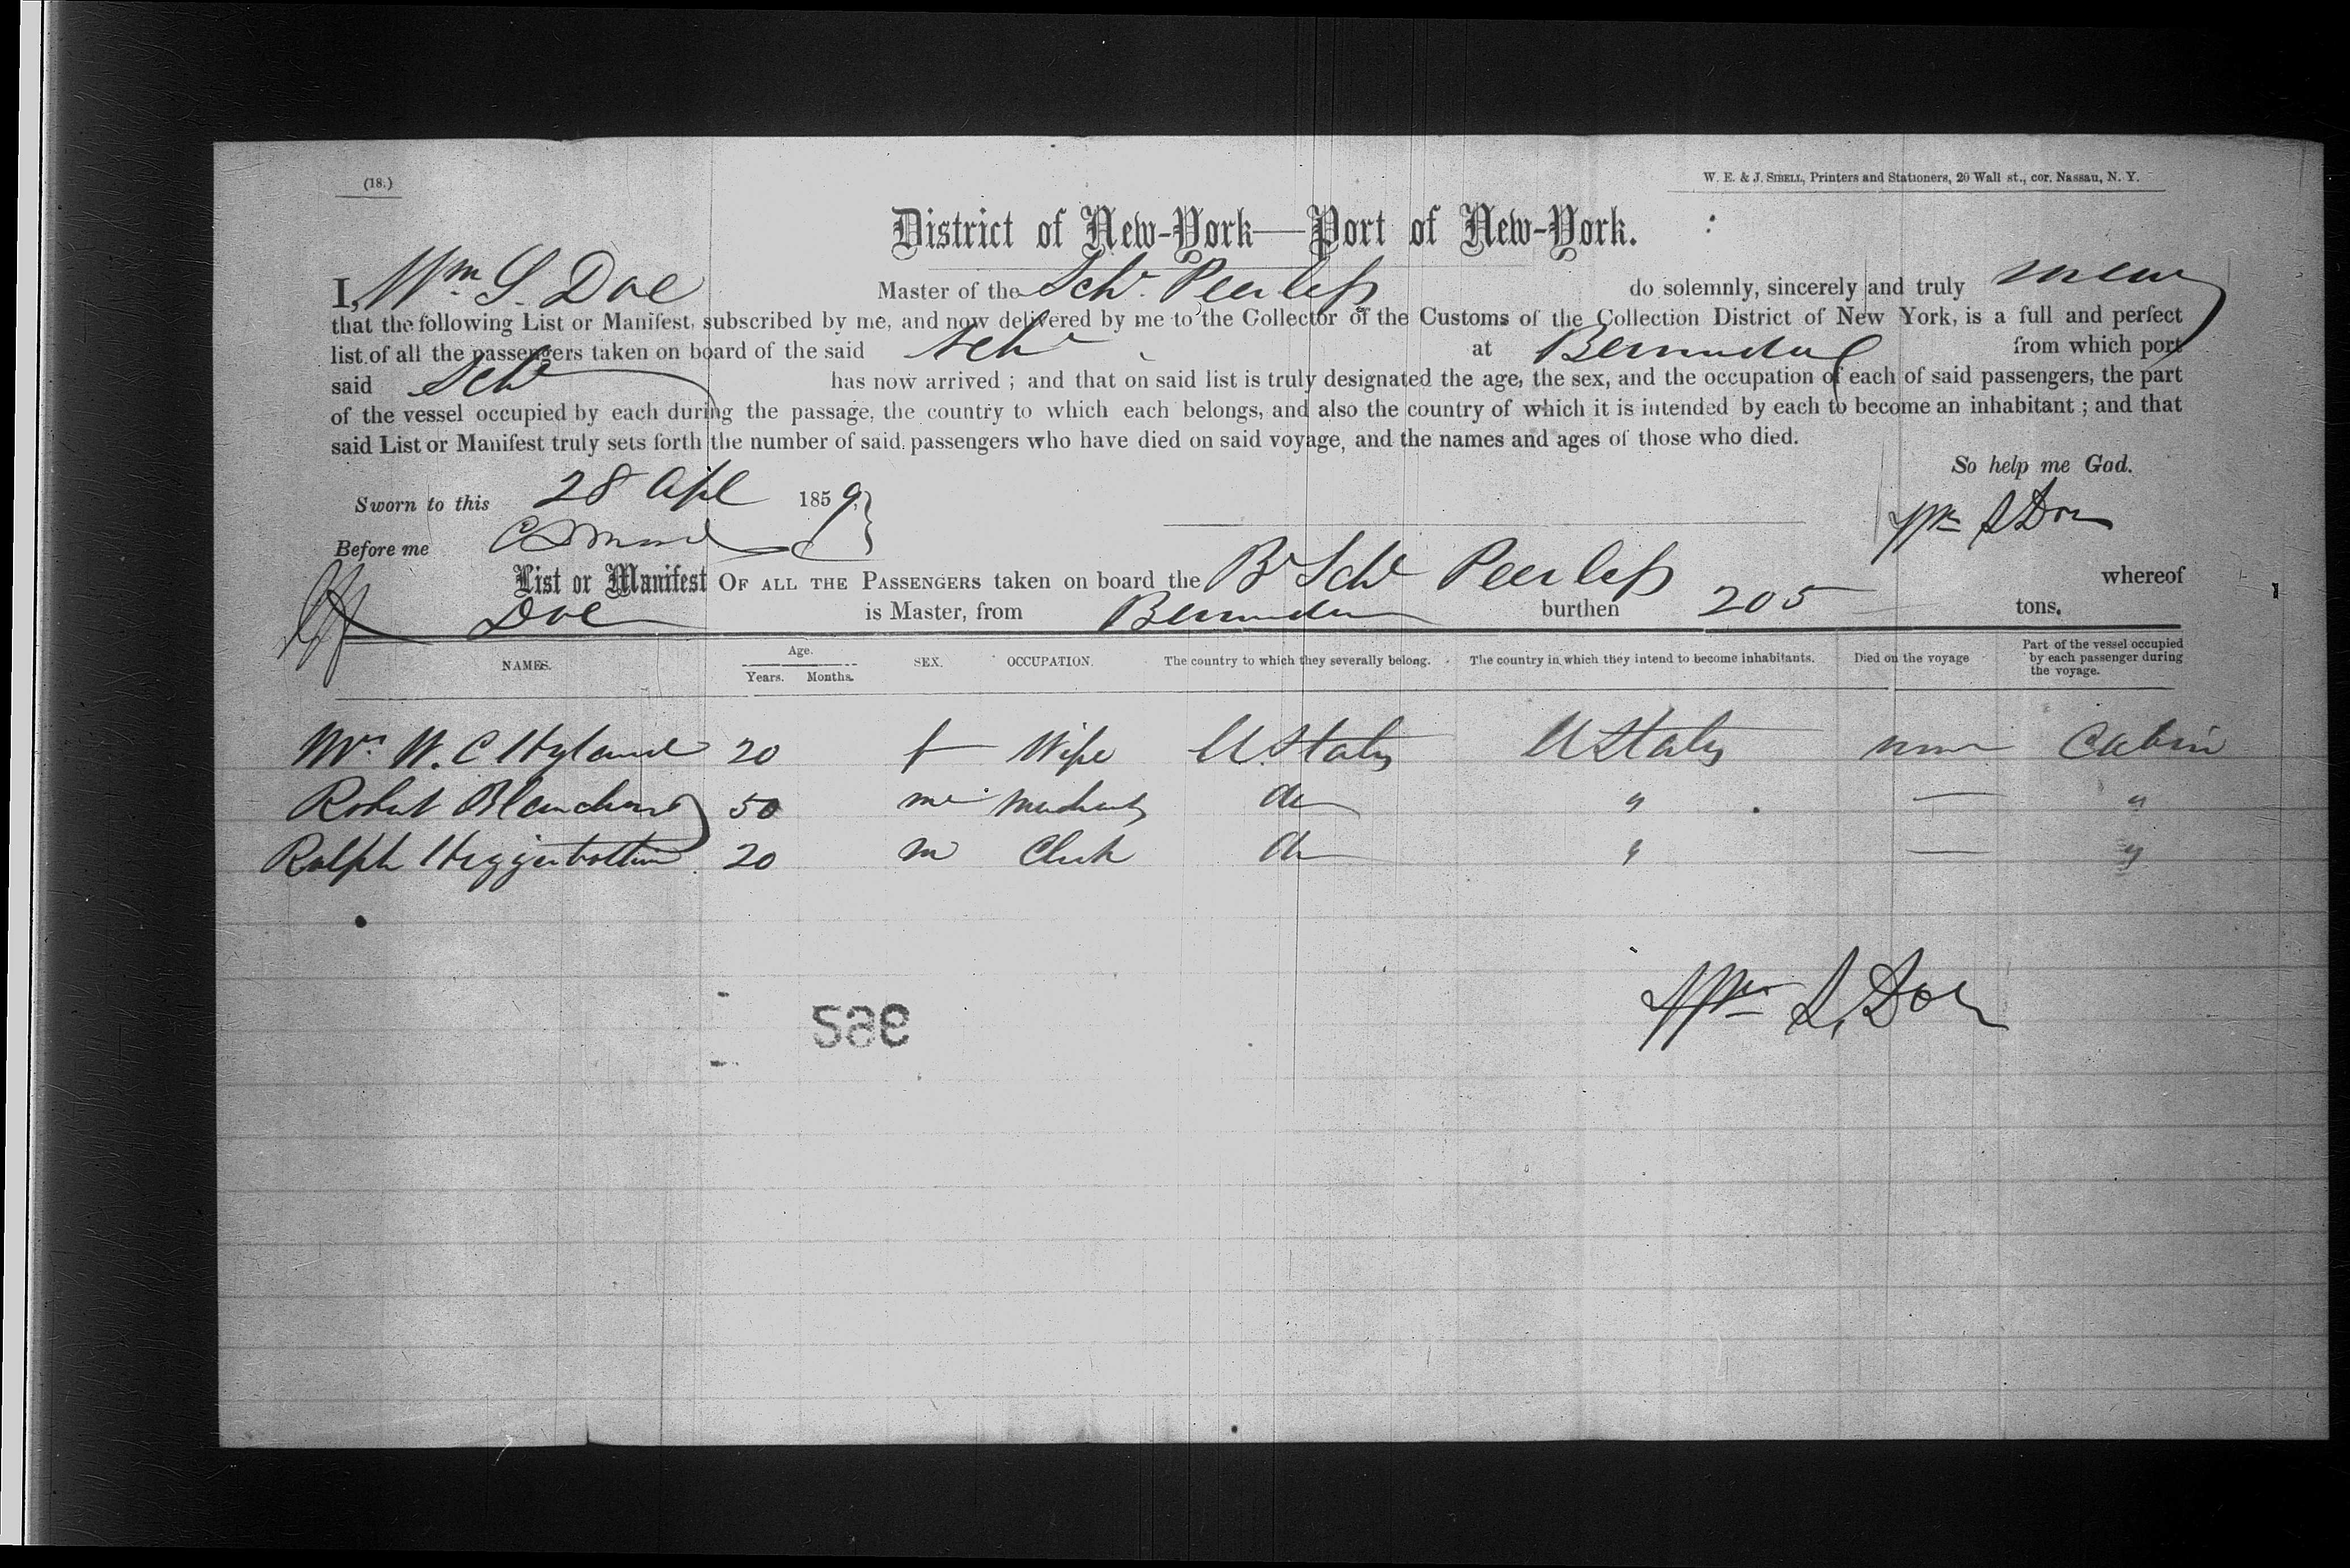 (18.)
W. E. & J. SIBELL, Printers and Stationers, 20 Wall st., cor. Nassau, N. Y.
District of New-York—Port of New-York.
I, Wm. S. Doe Master of the Schr. Peerless do solemnly, sincerely and truly swear
that the following List or Manifest, subscribed by me, and now delivered by me to the Collector of the Customs of the Collection District of New York, is a full and perfect
list of all the passengers taken on board of the said Schr at Bermuda from which port
said Schr has now arrived ; and that on said list is truly designated the age, the sex, and the occupation of each of said passengers, the part
of the vessel occupied by each during the passage, the country to which each belongs, and also the country of which it is intended by each to become an inhabitant ; and that
said List or Manifest truly sets forth the number of said passengers who have died on said voyage, and the names and ages of those who died.
So help me God.
Sworn to this 28 Apl 1859,
Wm S Doe
Before me
List or Manifest OF ALL THE PASSENGERS taken on board the Br Schr Peerless whereof
Doe is Master, from Bermuda burthen 205 tons.
NAMES. Age. Years. Months. SEX. OCCUPATION. The country to which they severally belong. The country in which they intend to become inhabitants. Died on the voyage Part of the vessel occupied by each passenger during the voyage.
Mrs W. C Hyland 20 f Wife U. States U States none Cabin
Robert Blanchard 50 m Merchant do " — "
Ralph Higginbottom 20 m Clerk do " — "
Wm S. Doe
592